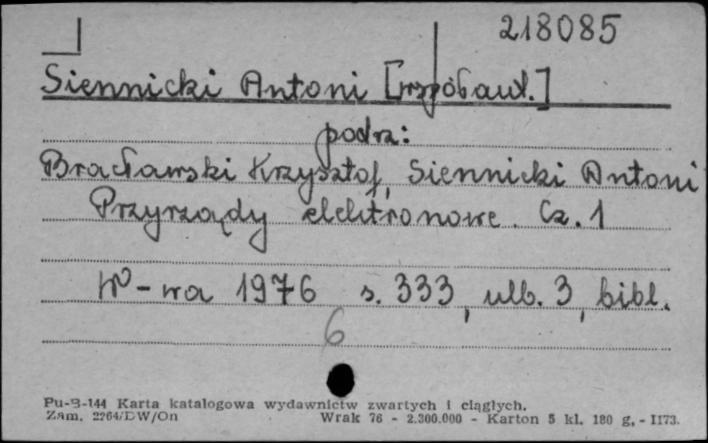 218085
Siennicki Antoni [współaut.]
podrz:
Bracławski Krzysztof, Siennicki Antoni
Przyrządy elektronowe. Cz. 1
W-wa 1976 s. 333, ulb. 3, bibl.
6
Pu-B-144 Karta katalogowa wydawnictw zwartych i ciągłych.
Zam. 2264/DW/On Wrak 76 - 2.300.000 - Karton 5 kl. 180 g. - I173.